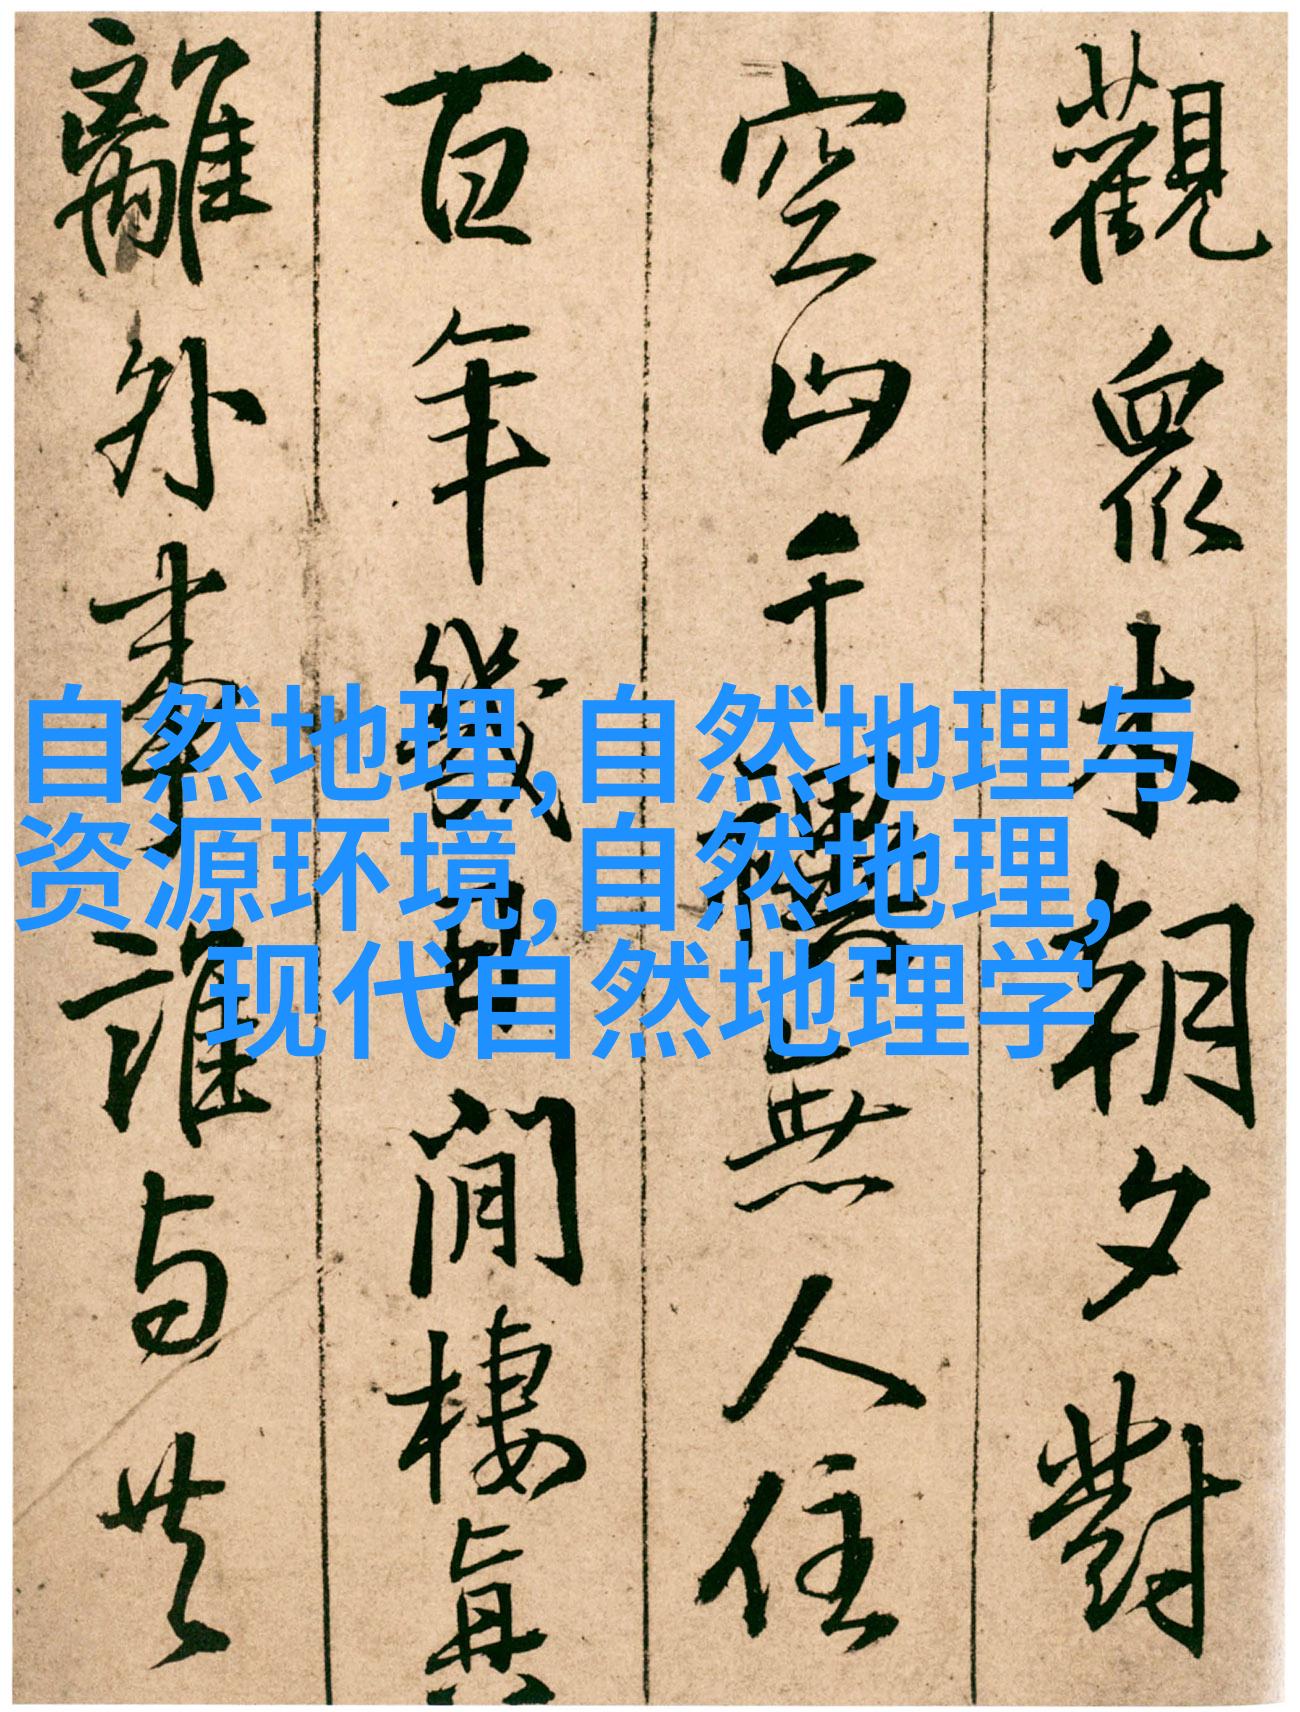 觀眾木朝夕對
空山千無人住
百年幾間棲真
離外事誰与共
自然地理,自然地理与
资源环境,自然地理,
现代自然地理学